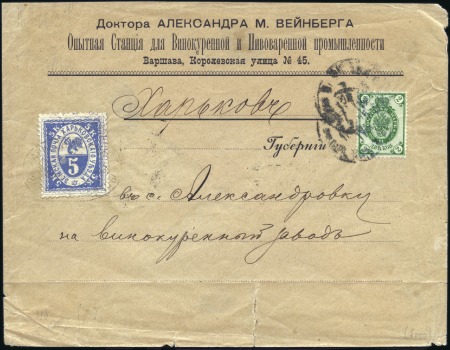 Доктора АЛЕКСАНДРА М. ВЕЙНБЕРГА
Опытная Станція для Винокуренной и Пивоваренной промышленности
Варшава, Королевская улица № 45.
Харьковъ
Губерніи
5
въ с. Александровку
на винокуренный заводъ